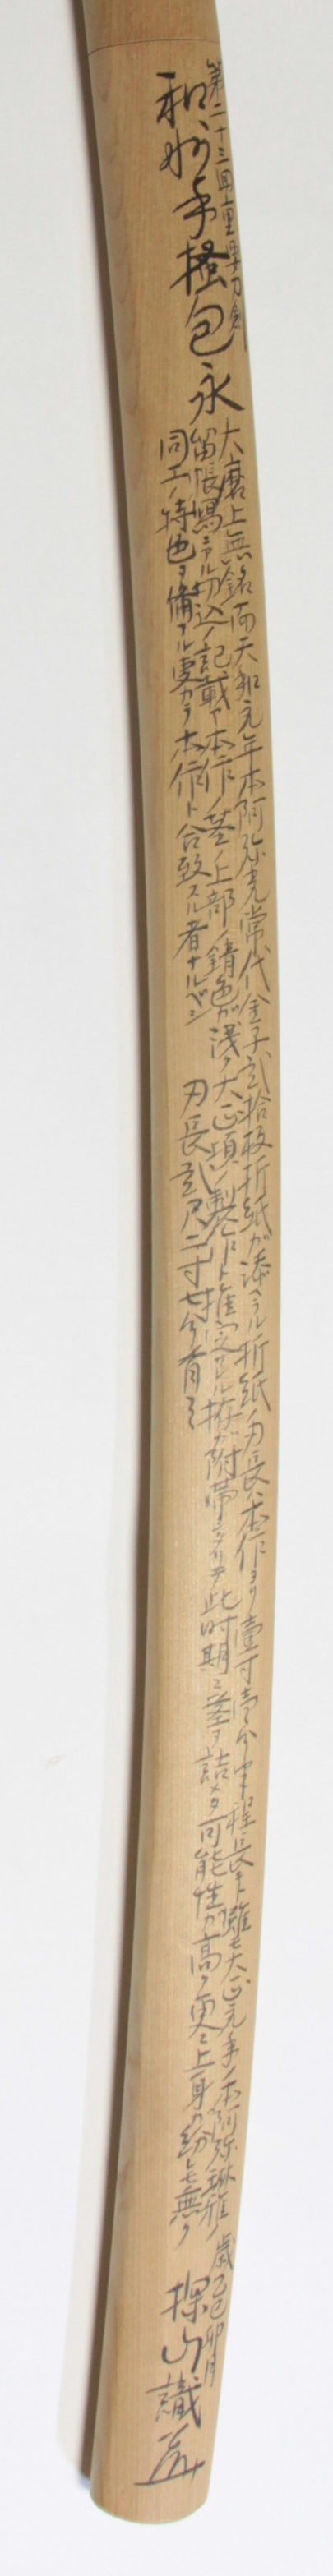 第二十三回重要刀剣
和州手掻包永
大磨上無銘而天和元年本阿弥光常代金子弐拾枚折紙が添ヘラル折紙ノ刃長ハ本作ヨリ壹寸壱分半程長キト雖モ大正元年ノ本阿弥琳雅ノ
留帳写ニアル切込ノ記載ヤ本作ノ茎ノ上部ノ錆色が浅ク大正頃ノ製作ト推定セル拵が附帯シヲリテ此時期ニ茎ヲ詰メタ可能性カ高ク更ニ上身カ紛レモ無ク
同工ノ特色ヲ備フル事カラ本作ト合致スル者ナルベシ
刃長弐尺二寸七分有之
歳乙巳卯月
探山識